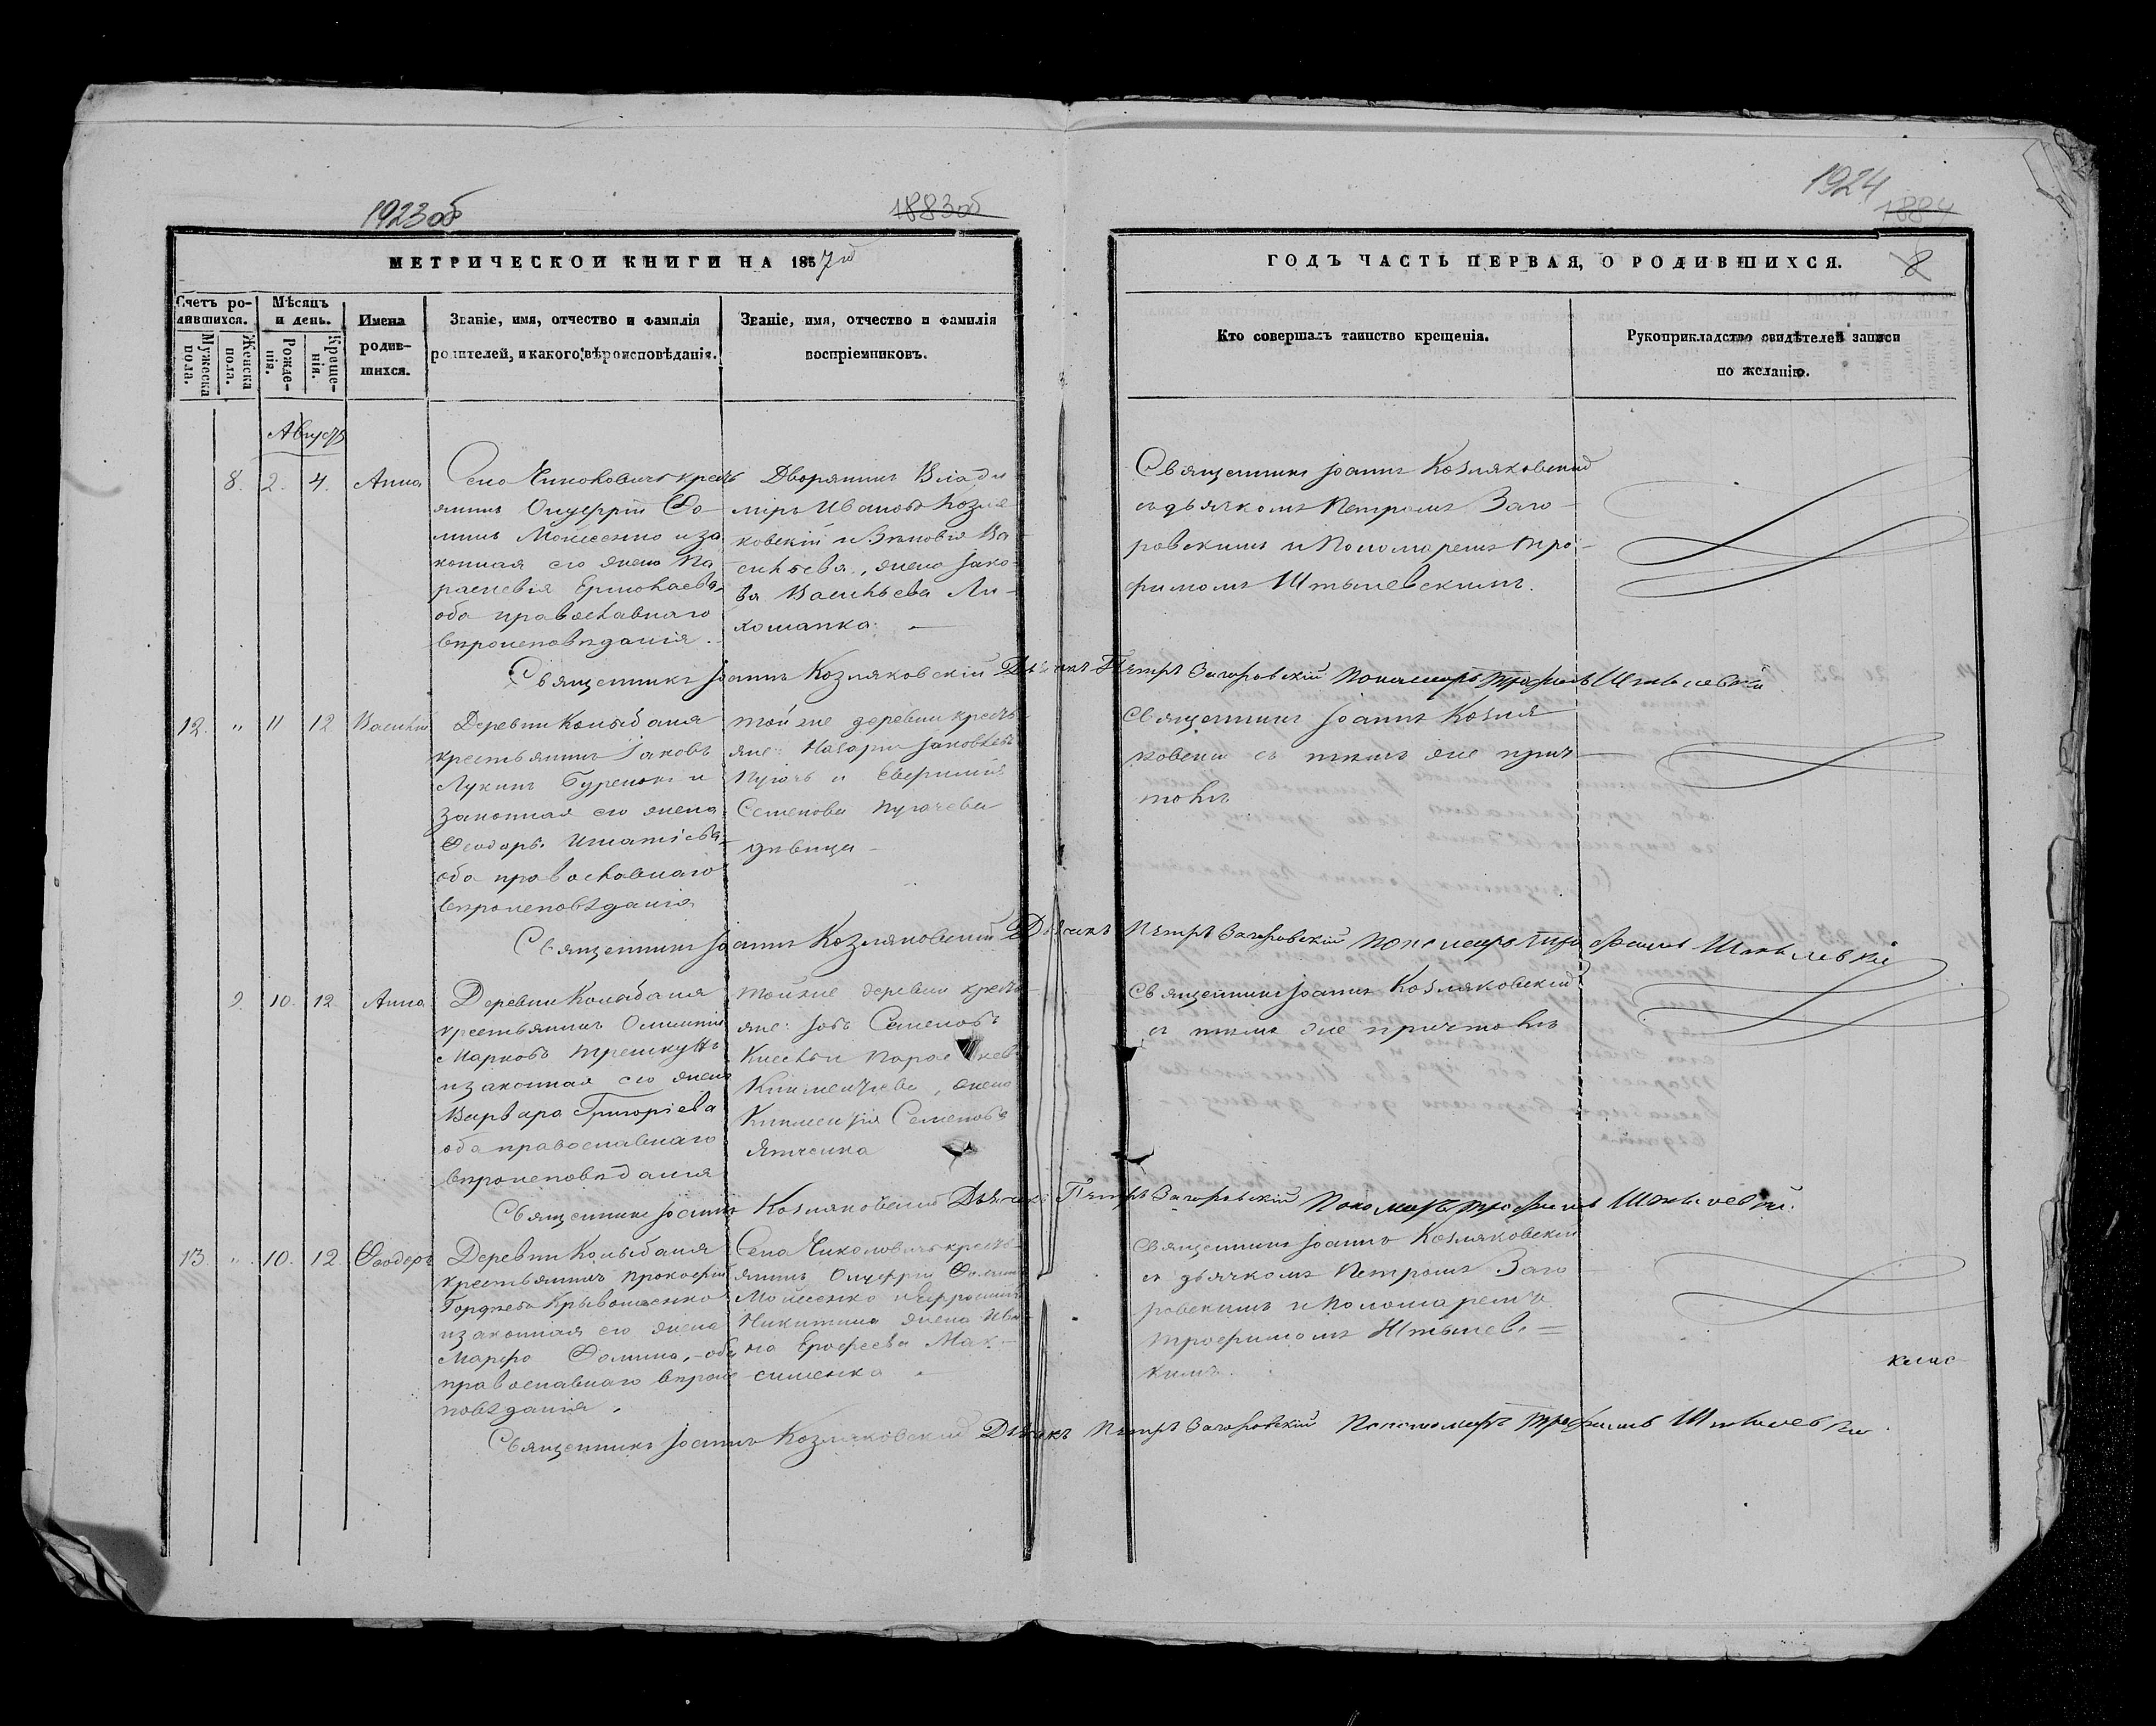 1923об
1883об
1924
1884
МЕТРИЧЕСКОЙ КНИГИ НА 1857й
ГОДЪ ЧАСТЬ ПЕРВАЯ, О РОДИВШИХСЯ.
8
Счетъ ро-
дившихся.
Мѣсяцъ
и день.
Имена
родив-
шихся.
Званіе, имя, отчество и фамилія
родителей, и какого вѣроисповѣданія.
Званіе, имя, отчество и фамилія
воспріемниковъ.
Мужеска
пола.
Женска
пола.
Рожде-
нія.
Креще-
нія.
Кто совершалъ таинство крещенія.
Рукоприкладство свидѣтелей записи
по желанію.
Августъ
8. 2. 4. Анна
Село крестъ
янинъ Онуфрій Ѳо-
минъ Моисеенко и за
конная его жена Па
раскевія Ермолаева
оба православнаго
вѣроисповѣданія.
Дворянинъ Влади
міръ Ивановъ Козля
ковскій и Зѣновія Ва
сильева, жена Іако
ва Васильева Ли-
хоманка.
Священникъ Іоаннъ Козляковскій
съ дьячкомъ Петромъ Заго-
ровскимъ и Пономаремъ Тро-
фимомъ Штылевскимъ.
Священникъ Іоаннъ Козляковскій Дьячекъ Петръ Загоровскій Пономарь Трофимъ Штылевскій
12. " 11 12 Василій
Деревни Колыбаня
крестьянинъ Іаковъ
Лукинъ и
законная его жена
Ѳеодора Игнатіева
оба православнаго
вѣроисповѣданія
Той же деревни кресть
яне: Назарій Іаковлевъ
Пугачъ и Евфимія
Семенова Пугачева
дѣвица
Священникъ Іоаннъ Козля
ковскій съ тѣмъ же прич-
томъ
Священникъ Іоаннъ Козляковскій Дьячекъ Петръ Загоровскій Пономарь Трофимъ Штылевскій
9. 10. 12. Анна
Деревни Колыбаня
крестьянинъ
Марковъ
и законная его жена
Варвара Григоріева
оба православнаго
вѣроисповѣданія
Той же деревни кресть
яне: Іовъ Семеновъ
и Параскева
Климентіева, жена
Климентія Семенова
Священникъ Іоаннъ Козляковскій
съ тѣмъ же причтомъ
Священникъ Іоаннъ Козляковскій Дьячекъ Петръ Загоровскій Пономарь Трофимъ Штылевскій.
13. " 10. 12. Ѳеодоръ
Деревни Колыбаня
крестьянинъ Прокофій
Гордѣевъ
и законная его жена
Марфа Ѳомина, оба
православнаго вѣроис
повѣданія.
Села кресть
янинъ Онуфрій Ѳоминъ
Моисеенко и Евфросинія
Никитина жена Ива
на Ерофеева Мак-
сименка
Священникъ Іоаннъ Козляковскій
съ дьячкомъ Петромъ Заго
ровскимъ и Пономаремъ
Трофимомъ Штылевс=
кимъ.
Священникъ Іоаннъ Козляковскій Дьячекъ Петръ Загоровскій Пономарь Трофимъ Штылевскій